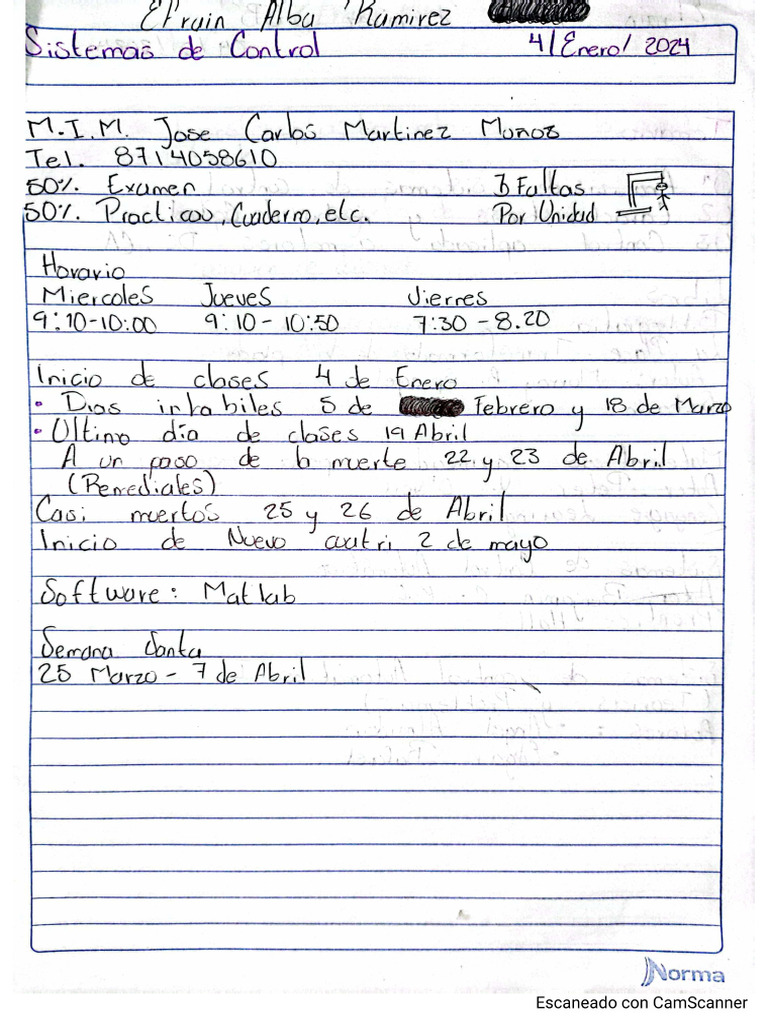 Efrain Alba Ramirez
Sistemas de Control 4/Enero/2024
M.I.M. Jose Carlos Martinez Muñoz
Tel. 8714058610
50% Examen 3 Faltas
50% Practicas, Cuaderno, etc. Por Unidad
Horario
Miercoles Jueves Viernes
9:10-10:00 9:10-10:50 7:30-8.20
Inicio de clases 4 de Enero
• Dias inhabiles 5 de Febrero y 18 de Marzo
• Ultimo día de clases 19 Abril
A un paso de la muerte 22 y 23 de Abril
(Remediales)
Casi muertos 25 y 26 de Abril
Inicio de Nuevo cuatri 2 de mayo
Software: Matlab
Semana Santa
25 Marzo - 7 de Abril
Norma
Escaneado con CamScanner